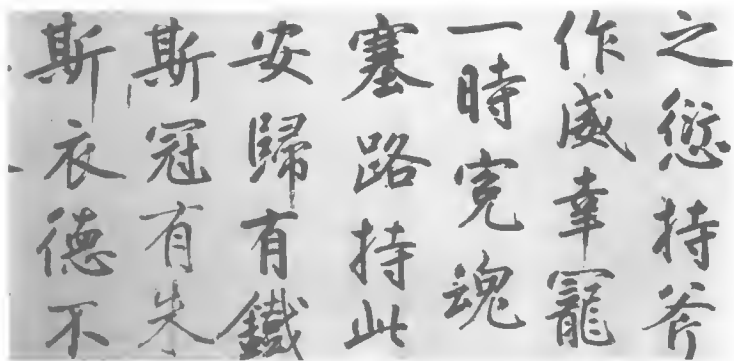 之愆持斧
作威幸寵
一時寃魂
塞路持此
安歸有鐵
斯冠有朱
斯衣德不